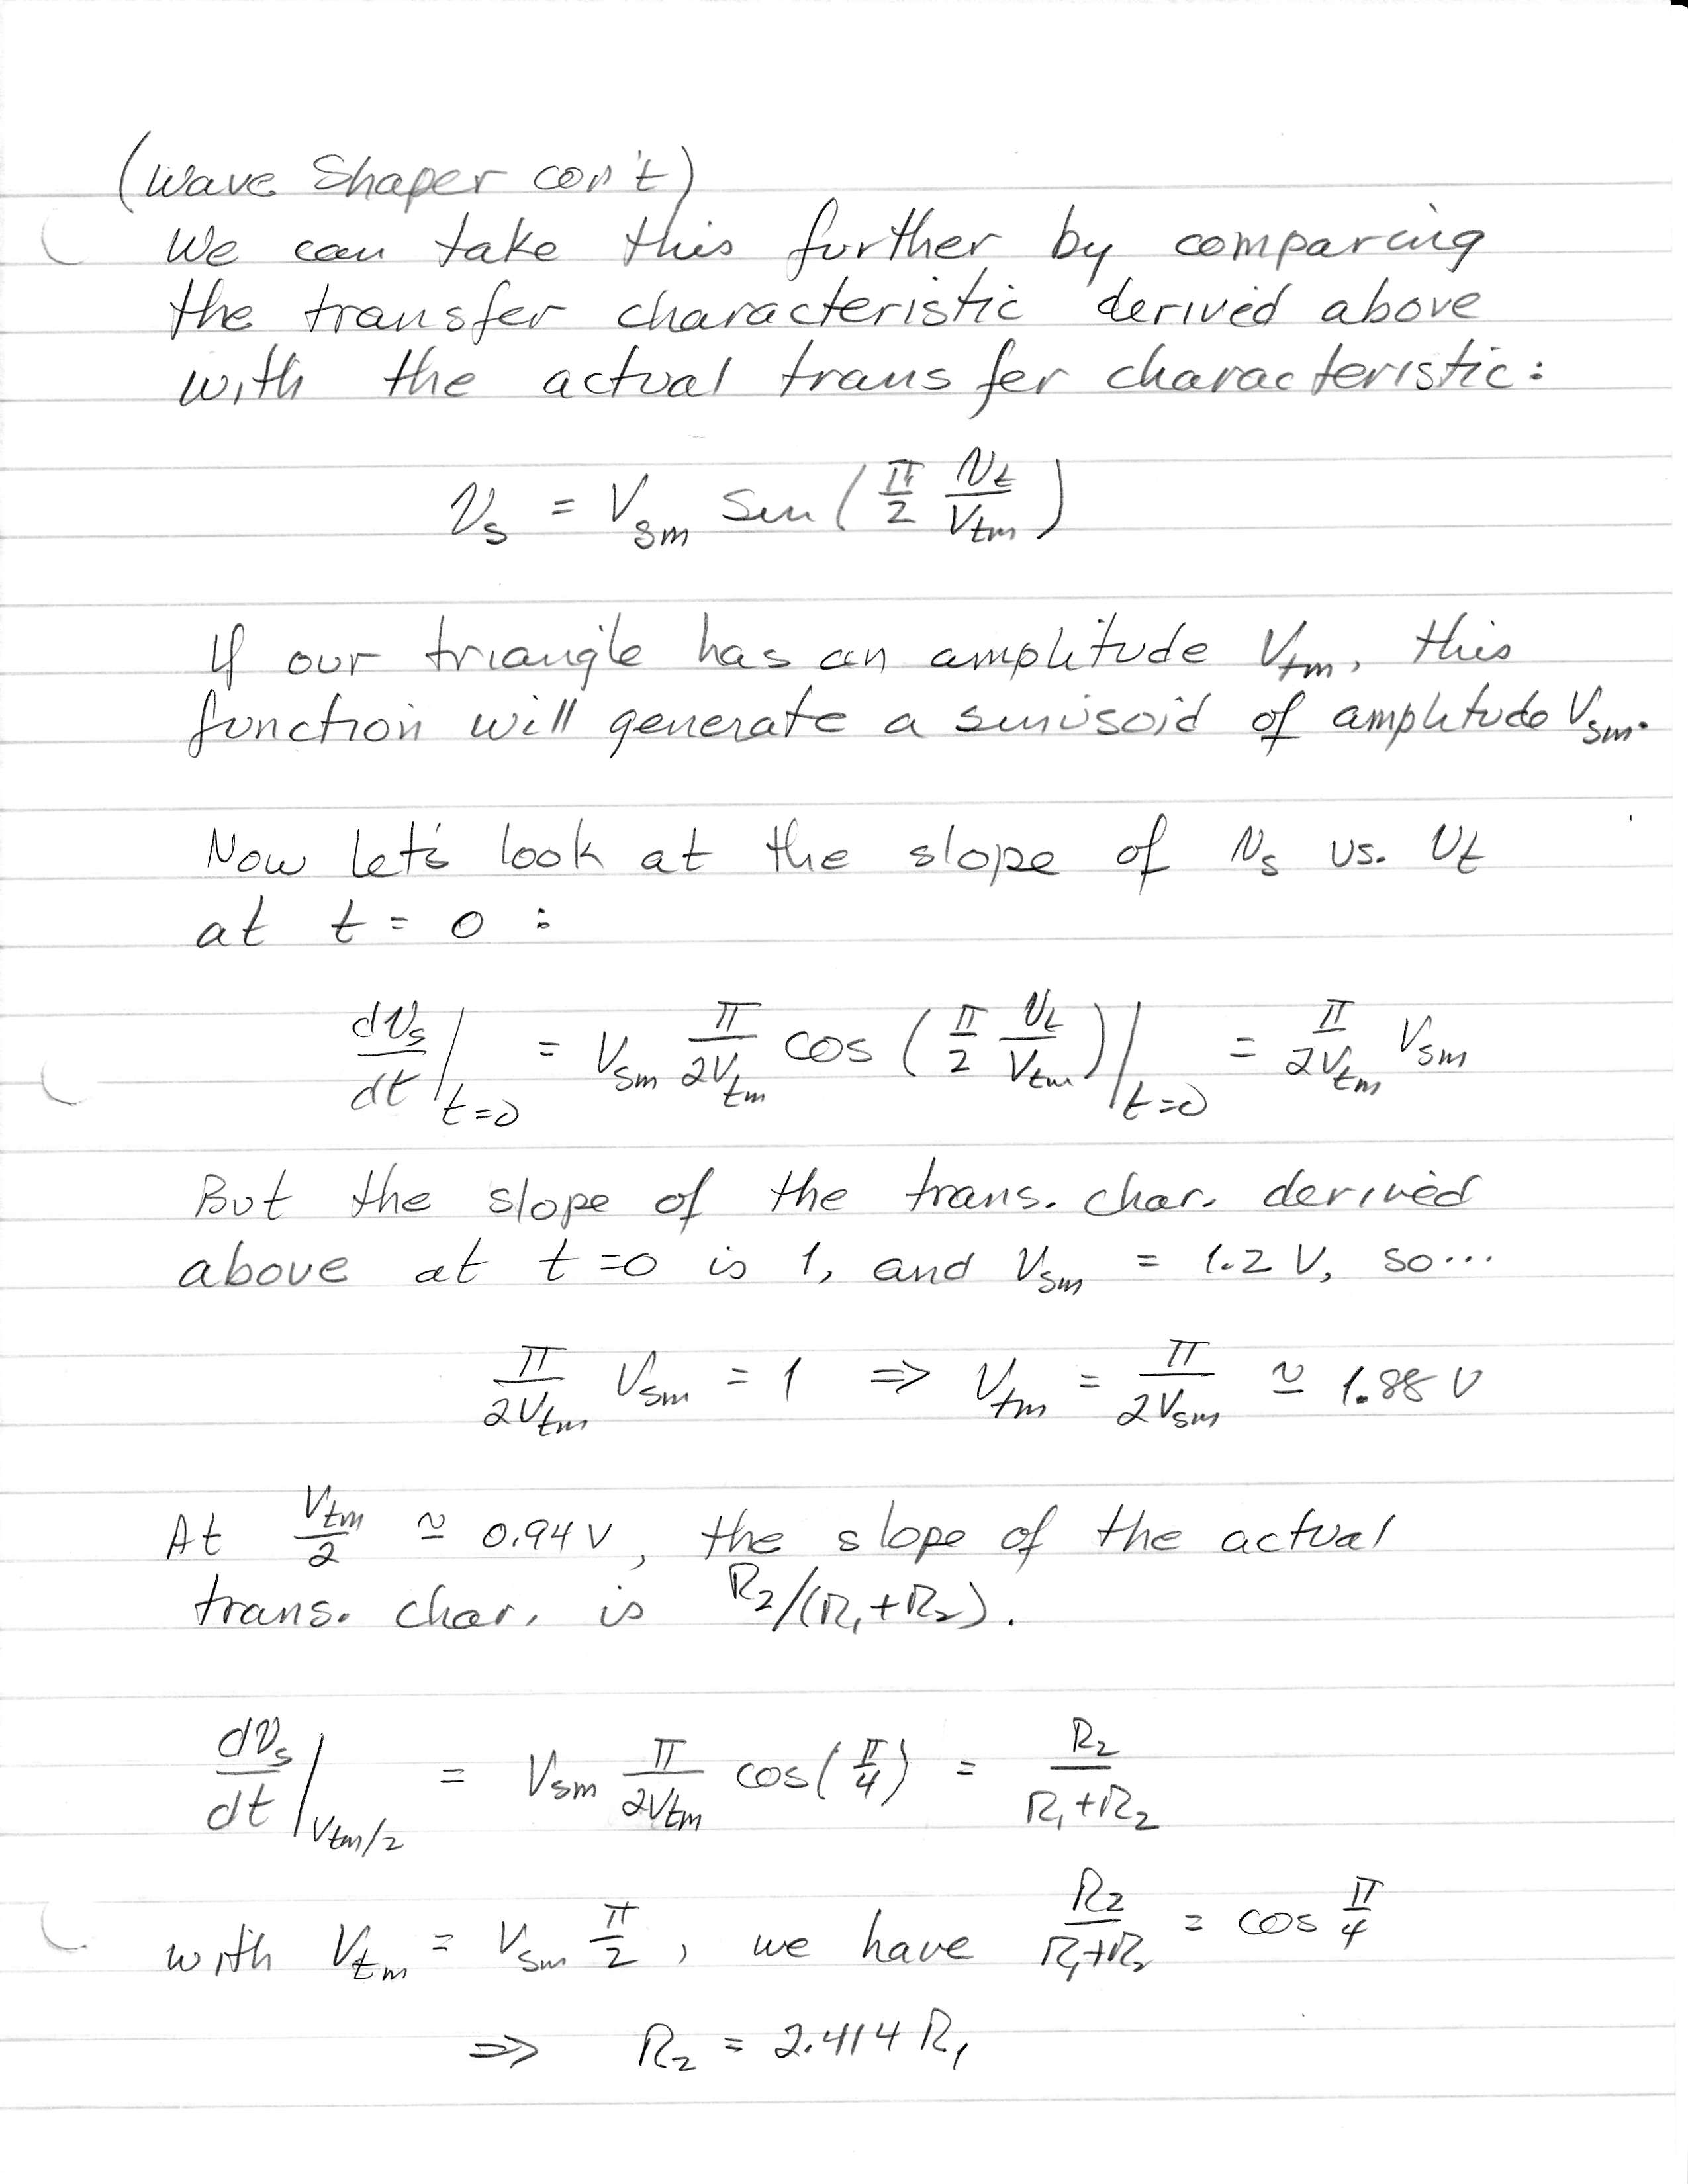 (Wave Shaper con't)
We can take this further by comparing
the transfer characteristic derived above
with the actual transfer characteristic:
v_s = V_sm sin(π/2 v_t/V_tm)
If our triangle has an amplitude V_tm, this
function will generate a sinusoid of amplitude V_sm.
Now let's look at the slope of v_s vs. v_t
at t = 0 :
dv_s/dt |_t=0 = V_sm π/2V_tm cos(π/2 v_t/V_tm)|_t=0 = π/2V_tm V_sm
But the slope of the trans. char. derived
above at t=0 is 1, and V_sm = 1.2 V, so...
π/2V_tm V_sm = 1 ⇒ V_tm = π/2V_sm ≃ 1.88 V
At V_tm/2 ≃ 0.94 V, the slope of the actual
trans. char. is R_2/(R_1+R_2).
dv_s/dt |_V_tm/2 = V_sm π/2V_tm cos(π/4) = R_2/R_1+R_2
with V_tm = V_sm π/2, we have R_2/R_1+R_2 = cos π/4
⇒ R_2 = 2.414 R_1